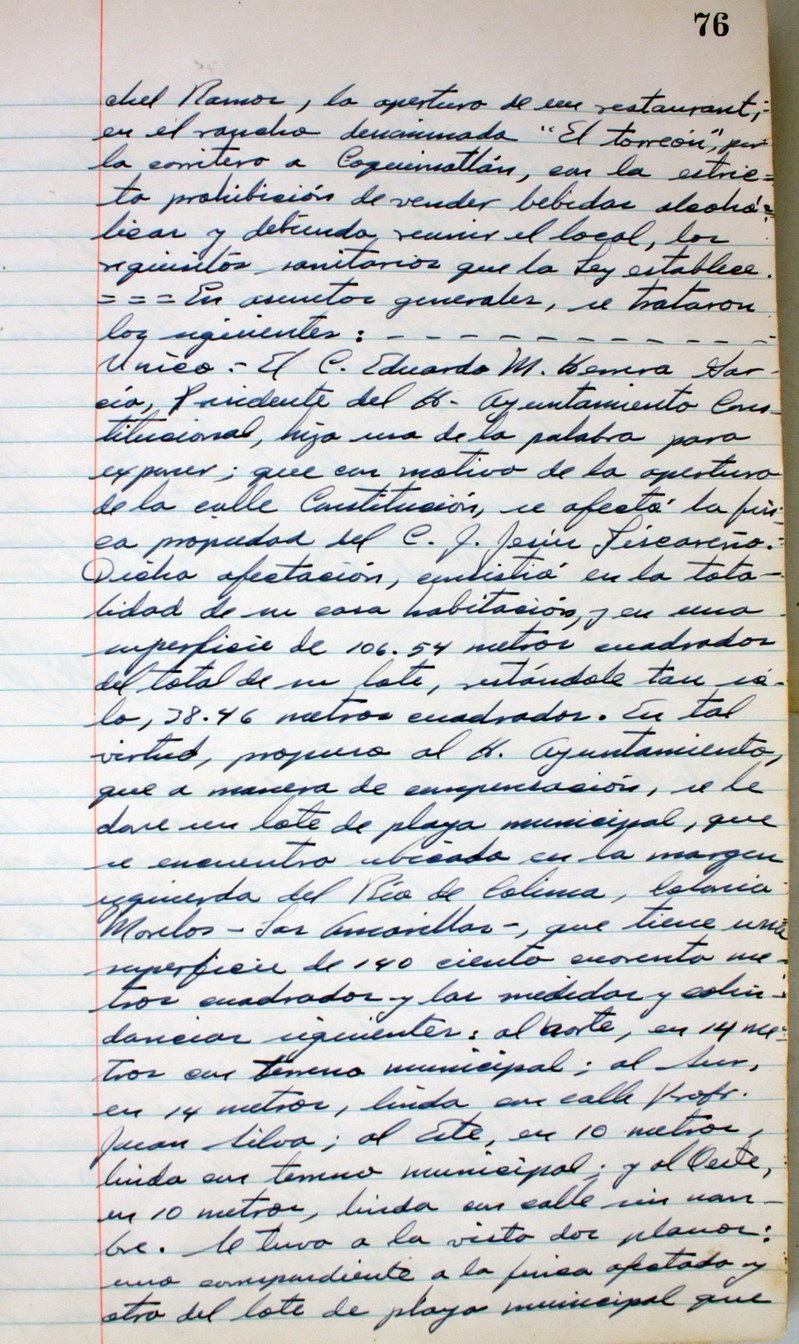 76
chel Ramos, la apertura de un restaurant,-
en el rancho denominado "El torreón", por
la carritera a Coquimatlán, con la estric=
ta prohibición de vender bebidas alcohó=
licas y debiendo reunir el local, los
requisitos sanitarios que la Ley establece.
=== En asuntos generales, se trataron
los siguientes: - - - - - - - - - - -
Unico.- El C. Eduardo M. Herrera Gar-
cía, Presidente del H. Ayuntamiento Cons-
titucional, hizo uso de la palabra para
exponer; que con motivo de la apertura
de la calle Constitución, se afectó la fin-
ca propiedad del C. J. Jesús Liscareño.-
Dicha afectación, consistió en la tota-
lidad de su casa habitación, y en una
superficie de 106.54 metros cuadrados
del total de su lote, restándole tan só-
lo, 38.46 metros cuadrados. En tal
virtud, propuso al H. Ayuntamiento,
que a manera de compensación, se le
done un lote de playa municipal, que
se encuentra ubicado en la margen
izquierda del Río de Colima, Colonia
Morelos - Las Amarillas -, que tiene una
superficie de 140 ciento cuarenta me-
tros cuadrados y las medidas y colin-
dancias siguientes: al norte, en 14 me-
tros con terreno municipal; al Sur,
en 14 metros, linda con calle Profr.
Juan Silva; al Este, en 10 metros,
linda con terreno municipal; y al Oeste,
en 10 metros, linda con calle sin nom-
bre. Se tuvo a la vista dos planos:
uno correspondiente a la finca afectada y
otro del lote de playa municipal que